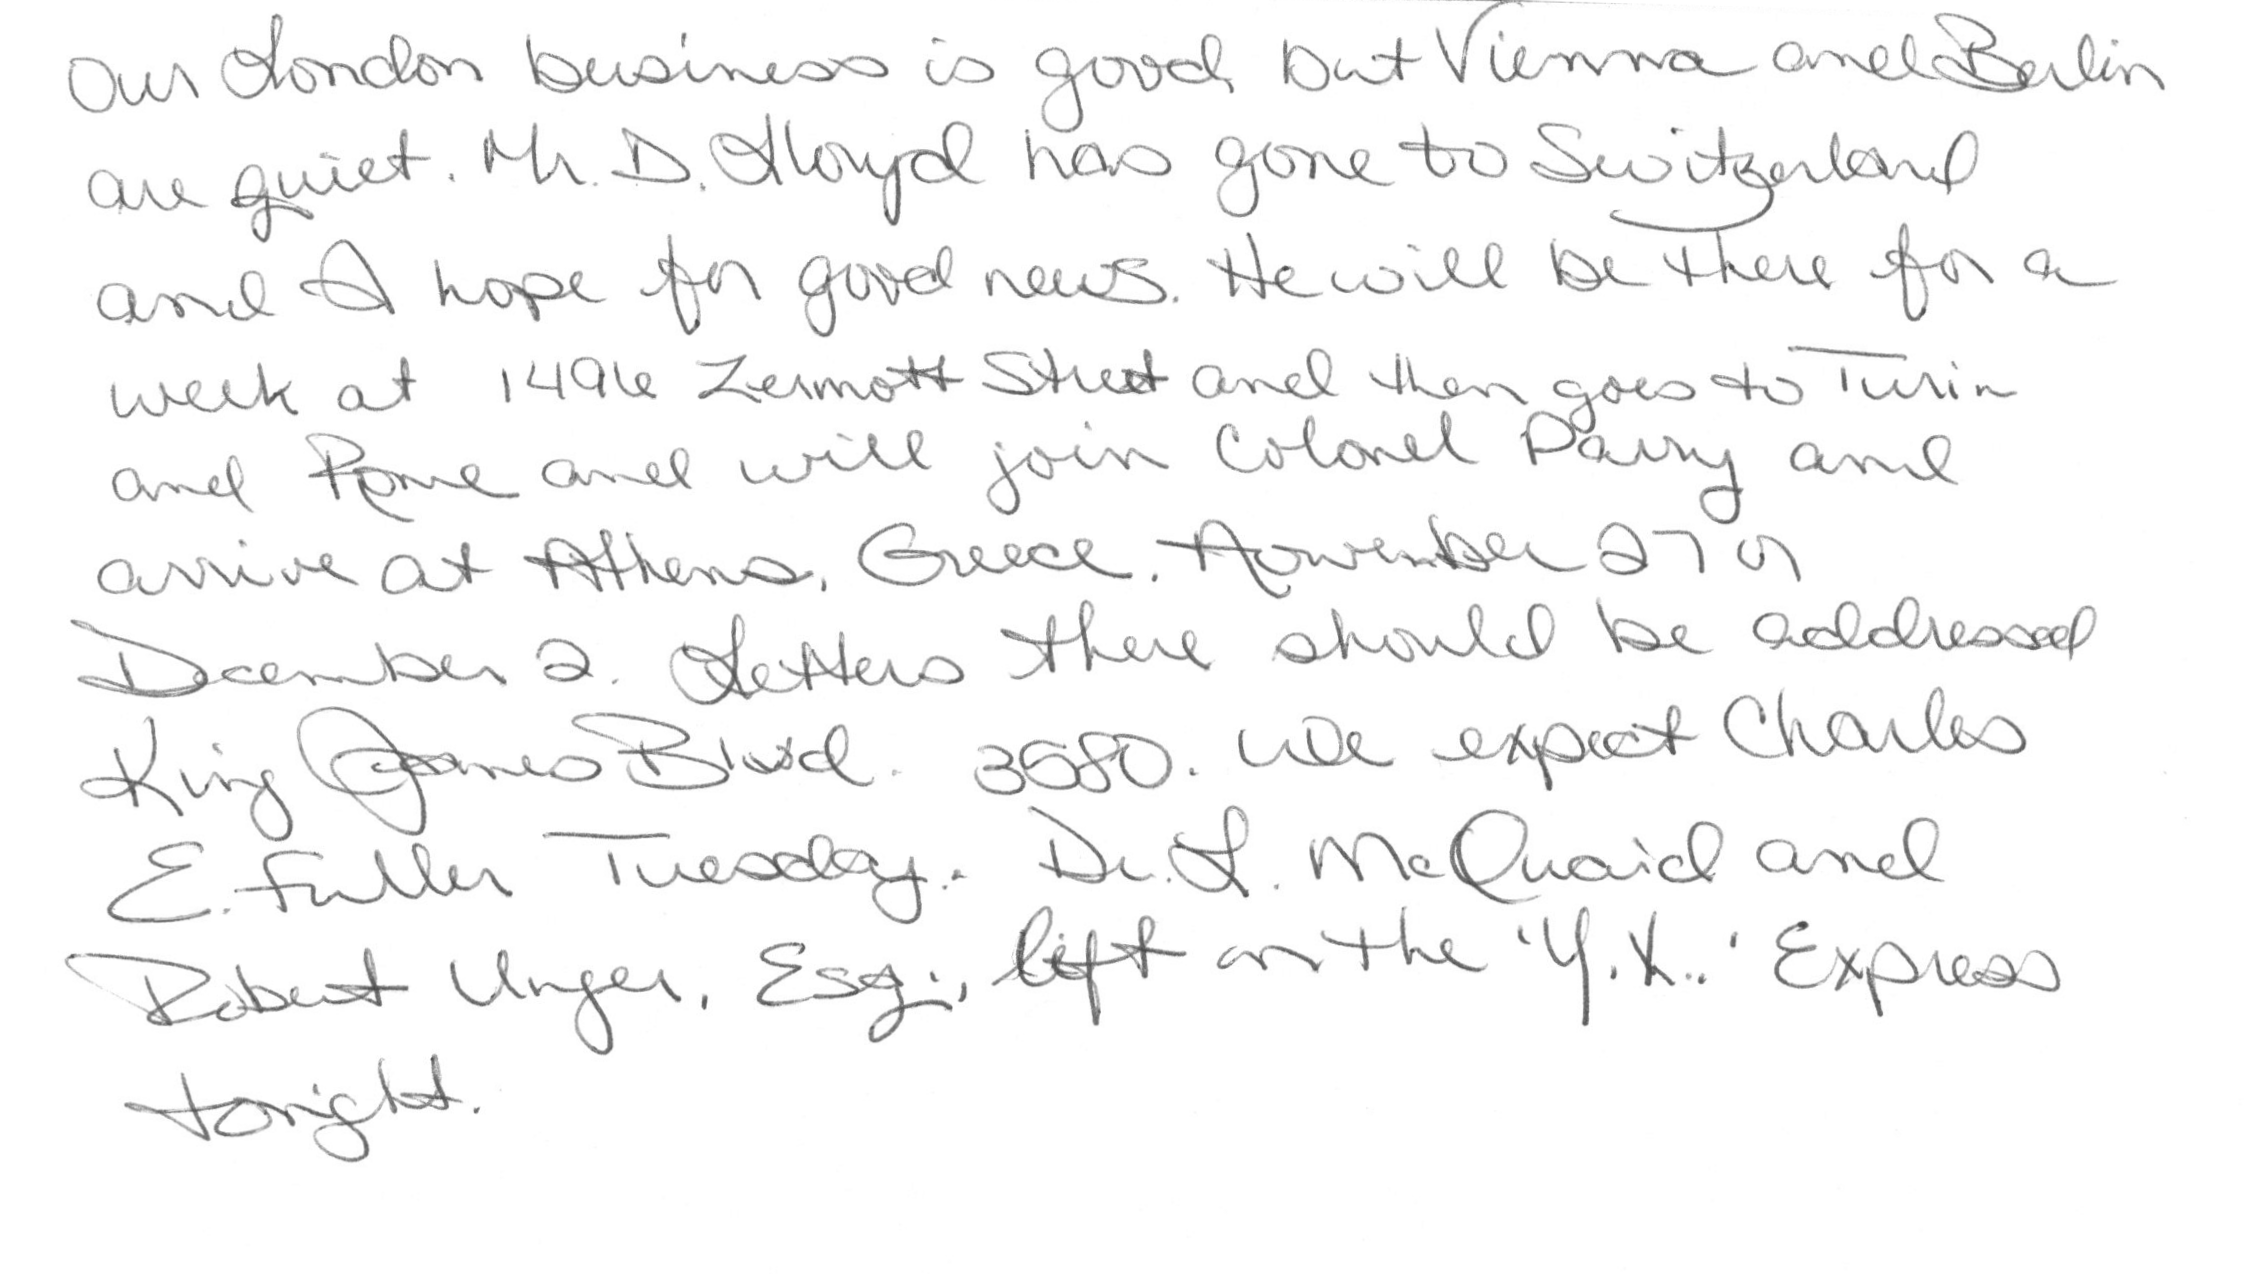 Our London business is good, but Vienna and Berlin
are quiet. Mr. D. Lloyd has gone to Switzerland
and I hope for good news. He will be there for a
week at 1496 Zermott Street and then goes to Turin
and Rome and will join Colonel Parry and
arrive at Athens, Greece, November 27 or
December 2. Letters there should be addressed
King James Blvd. 3580. We expect Charles
E. Fuller Tuesday. Dr. L. McQuaid and
Robert Unger, Esq., left on the 'Y.X.' Express
tonight.